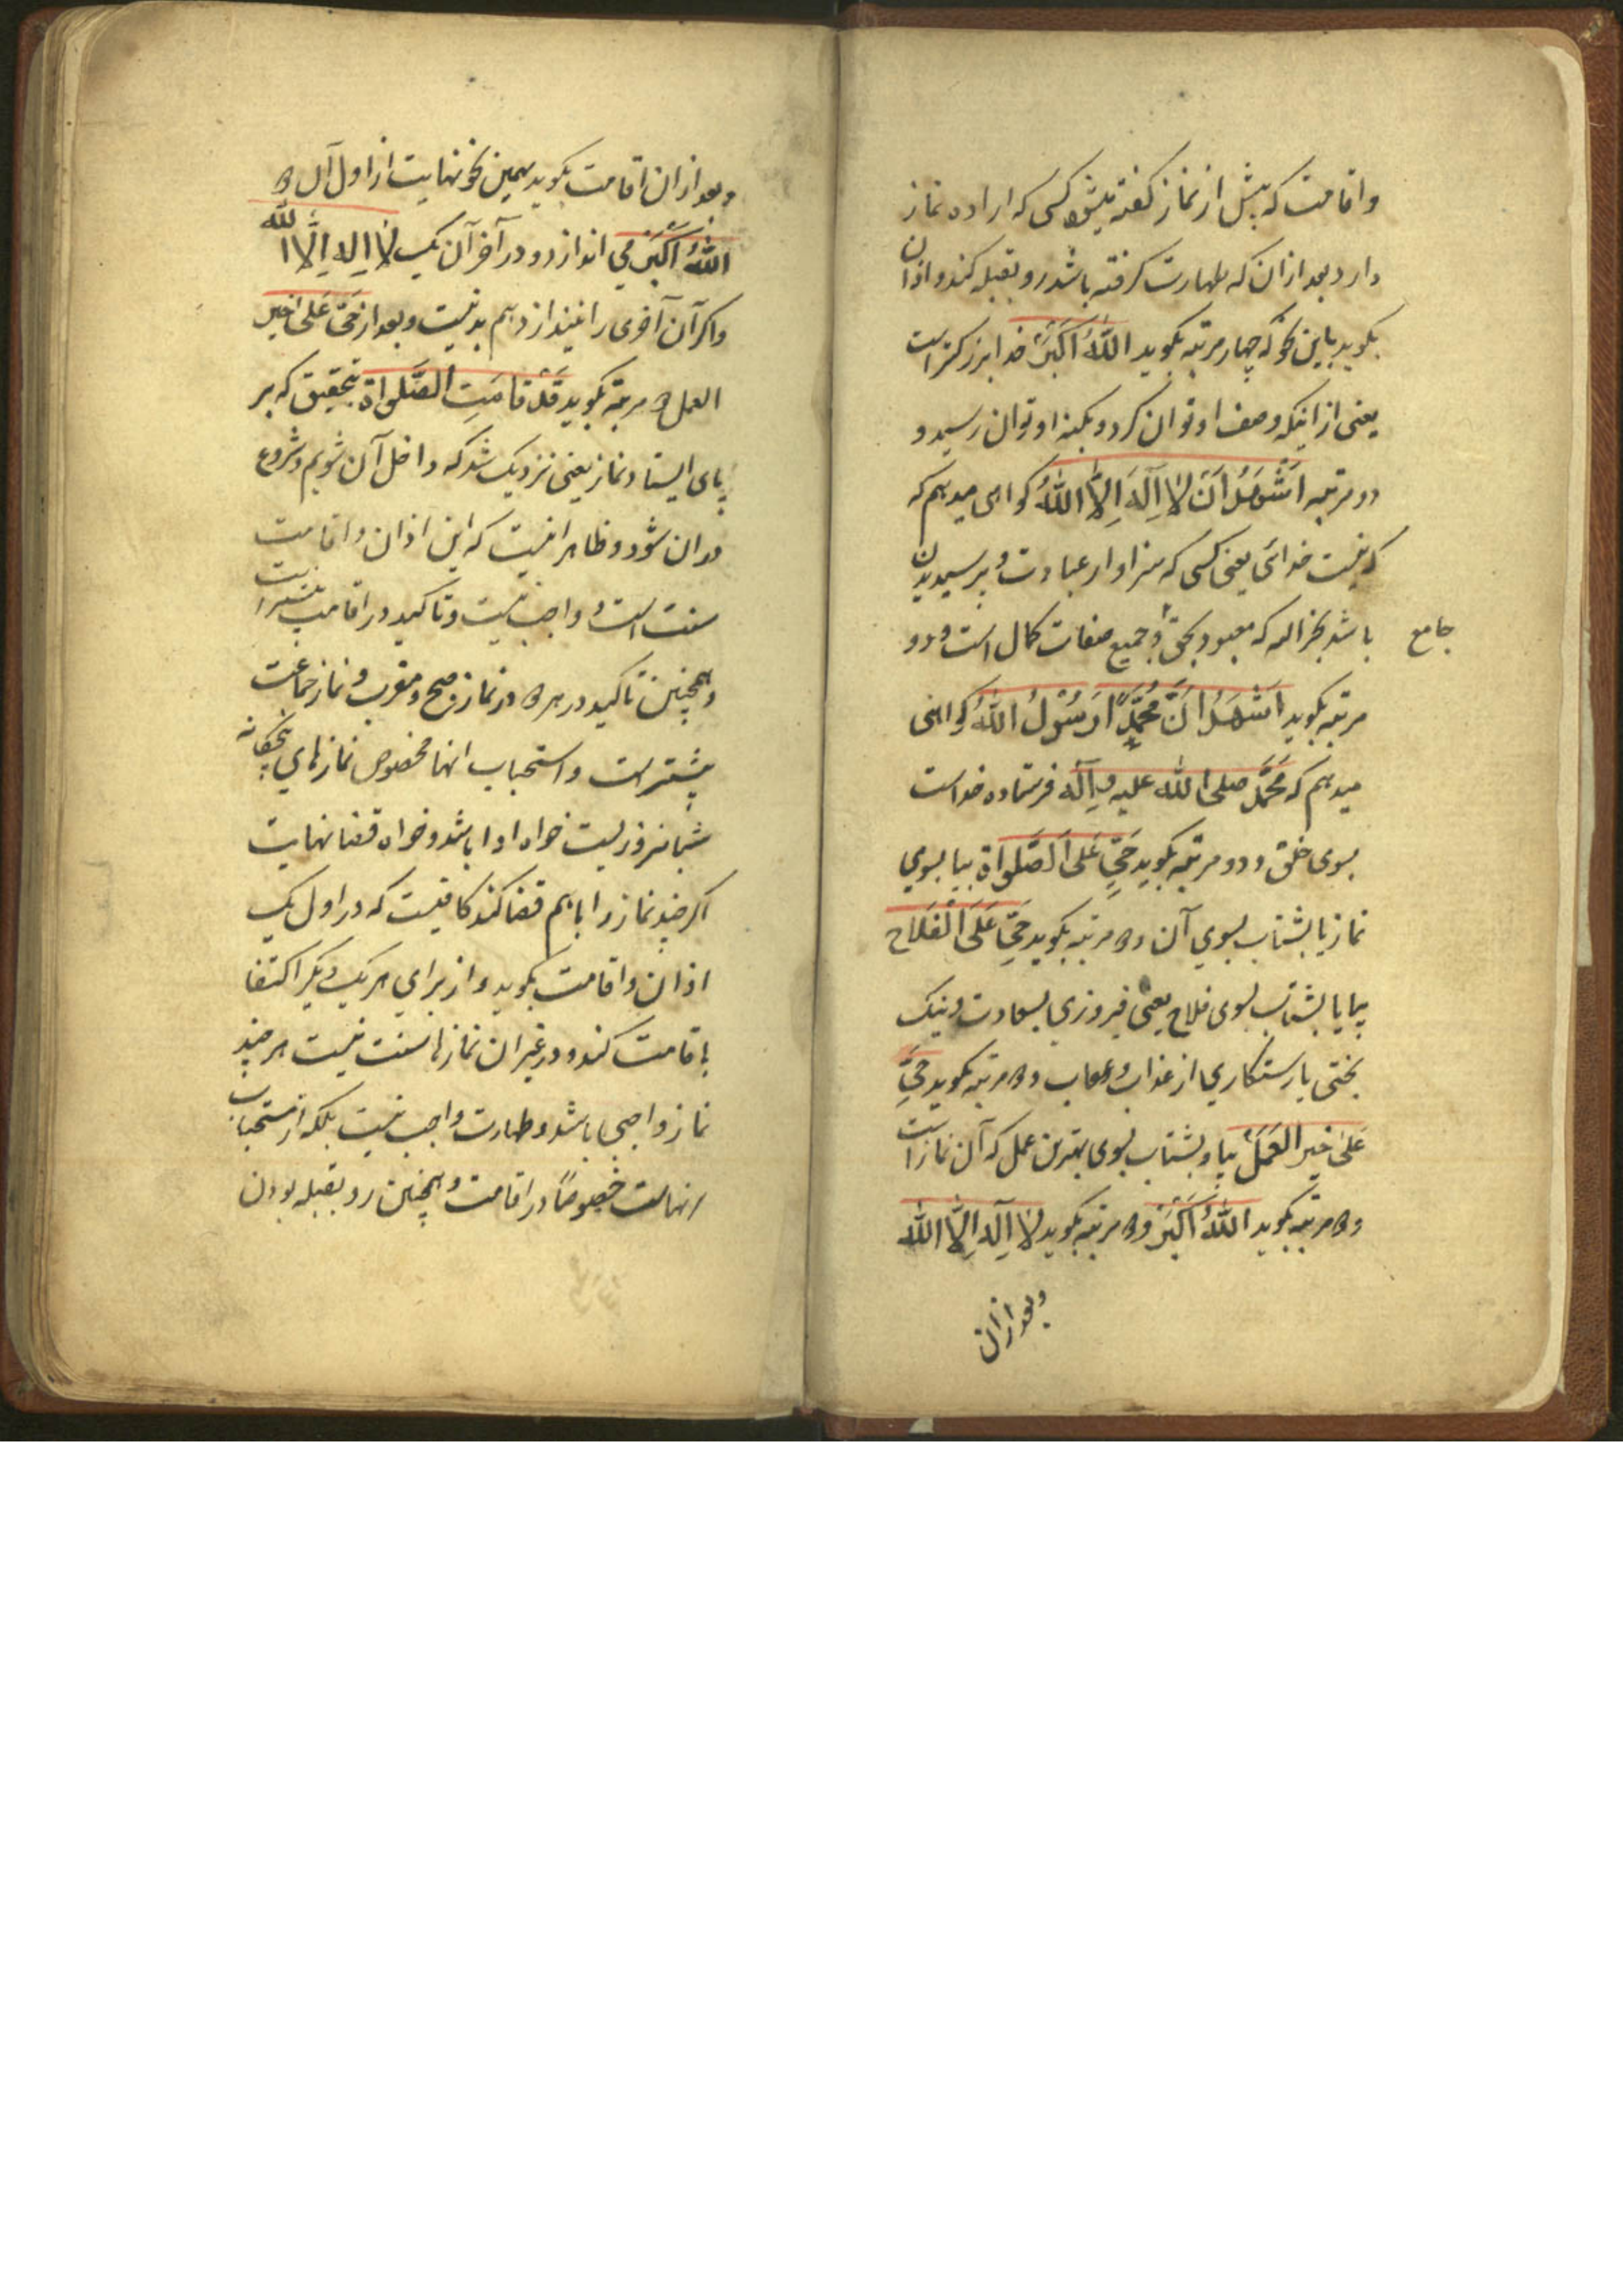 واقامت که پیش از نماز گفته میشود کسی که اراده نماز
دارد بعد از ان که طهارت گرفته باشد رو بقبله کند و اذان
بگوید باین نحو که چهار مرتبه بگوید اَللّٰهُ اَکْبَرْ خدا بزرکتر است
یعنی از اینکه وصف او توان کرد و بکنه او توان رسید و
دو مرتبه اَشْهَدُ اَنْ لا اِلٰهَ اِلاَّ اللّٰهُ کواهی میدهم که
که نیست خدائی یعنی کسی که سزاوار عبادت و پرسیدن
باشد بجز الله که معبود بحق و جمیع صفات کمال است و دو
جامع
مرتبه بگوید اَشْهَدُ اَنَّ مُحَمَّدًا رَسُوْلُ اللّٰهُ کواهی
میدهم که مُحَمَّد صلی الله علیه و اٰله فرستاده خداست
بسوی خلق و دو مرتبه بگوید حَیِّ عَلَی اَلصَّلواة بیا بسوی
نماز یا بشتاب بسوی آن و دو مرتبه بگوید حَیِّ عَلَی الْفَلَاح
بیا یا بشتاب بسوی فلاح یعنی فیروزی بسعادت و نیک
بختی یا رستکاری از عذاب و عقاب و دو مرتبه بگوید حَیِّ
عَلیٰ خَیرِ العَمَلْ بیا و بشتاب بسوی بهترین عمل که آن نماز است
و دو مرتبه بگوید اَللّٰهُ اَکْبَرْ و دو مرتبه بگوید لا اِلٰهَ اِلاَّ اللّٰه
وبعد ازان
وبعد ازان اقامت بگوید بهمین نحو نهایت از اول آن دو
اَللّٰهُ اَکْبَرْ می اندازد و در آخر آن یک لا اِله اِلاَّ الله
واکر آن آخری را نیندازد هم بد نیست و بعد از حَیَّ عَلی خیر
العمل دو مرتبه بگوید قَدْ قامَتِ الصَّلواة بتحقیق که بر
پای ایستاد نماز یعنی نزدیک شد که داخل آن شویم و شروع
در ان شود و ظاهرا نیست که این اذان و اقامت
سنت است و واجب نیست و تاکید در اقامت بیشتر است
و همچنین تاکید در هر دو در نماز صبح و مغرب و نماز جماعت
بیشتر است و استحباب انها مخصوص نمازهای پنجکانه
شبانروزیست خواه ادا باشد و خواه قضا نهایت
اکر چند نماز را باهم قضا کند کافیست که در اول یک
اذان و اقامت بگوید و از برای هر یک دیکر اکتفا
باقامت کند و در غیر ان نمازها سنت نیست هر چند
نماز واجبی باشد و طهارت واجب نیست بلکه از مستحباب
انهاست خصوصًا در اقامت و همچنین رو بقبله بودن